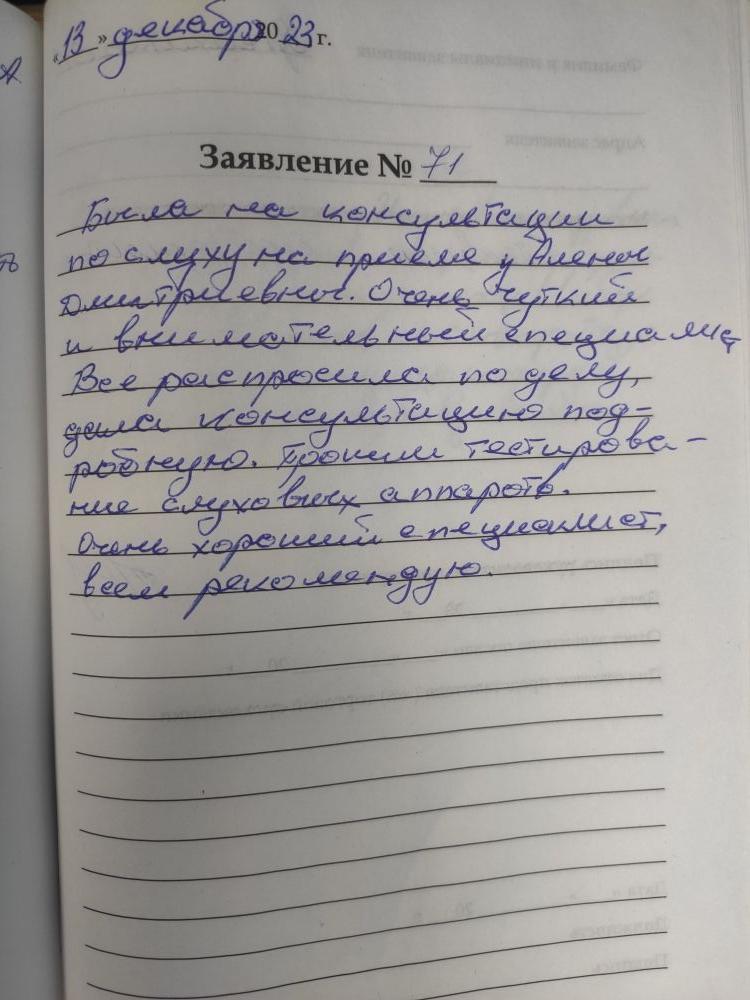 «13» декабря 2023 г.
Заявление № 71
Была на консультации
по слуху на приеме у Алены
Дмитриевны. Очень чуткий
и внимательный специалист
Все распросила по делу,
дала консультацию под-
робную. Прошли тестирова-
ние слуховых аппарато.
Очень хороший специалист,
всем рекомендую.